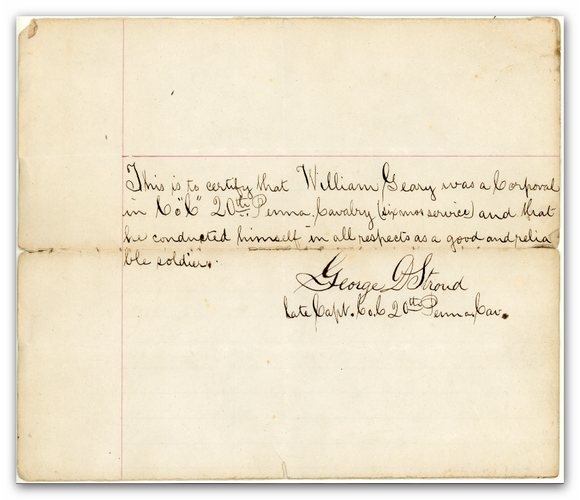 This is to certify that William Geary was a Corporal
in Co "C" 20th Penna Cavalry (six mos service) and that
he conducted himself in all respects as a good and relia
ble soldier.
George D Stroud
Late Capt. Co. C 20th Penna. Cav.